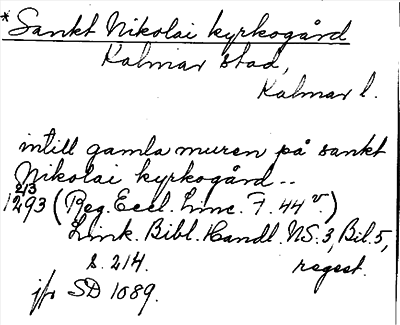 *Sankt Nikolai kyrkogård
Kalmar stad,
Kalmar l.
intill gamla muren på sankt
Nikolai kyrkogård..
23/3
1293 (Reg. Eccl. Linc. F. 44 v.)
Link. Bibl. Handl. NS. 3, Bil. 5,
s. 214. regest.
jfr SD 1089.